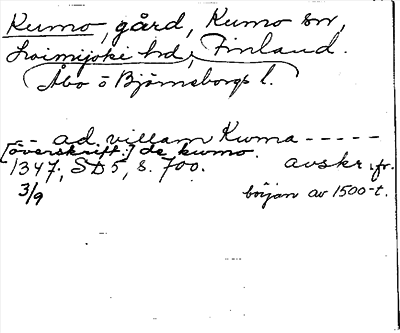 Kumo, gård, Kumo sn,
Loimijoki hd, Finland.
Åbo o Björneborgs l.
-- ad villam Kuma -----
[överskrift:] de kumo.
1347, SD 5, s. 700. avskr. fr.
3/9 början av 1500-t.